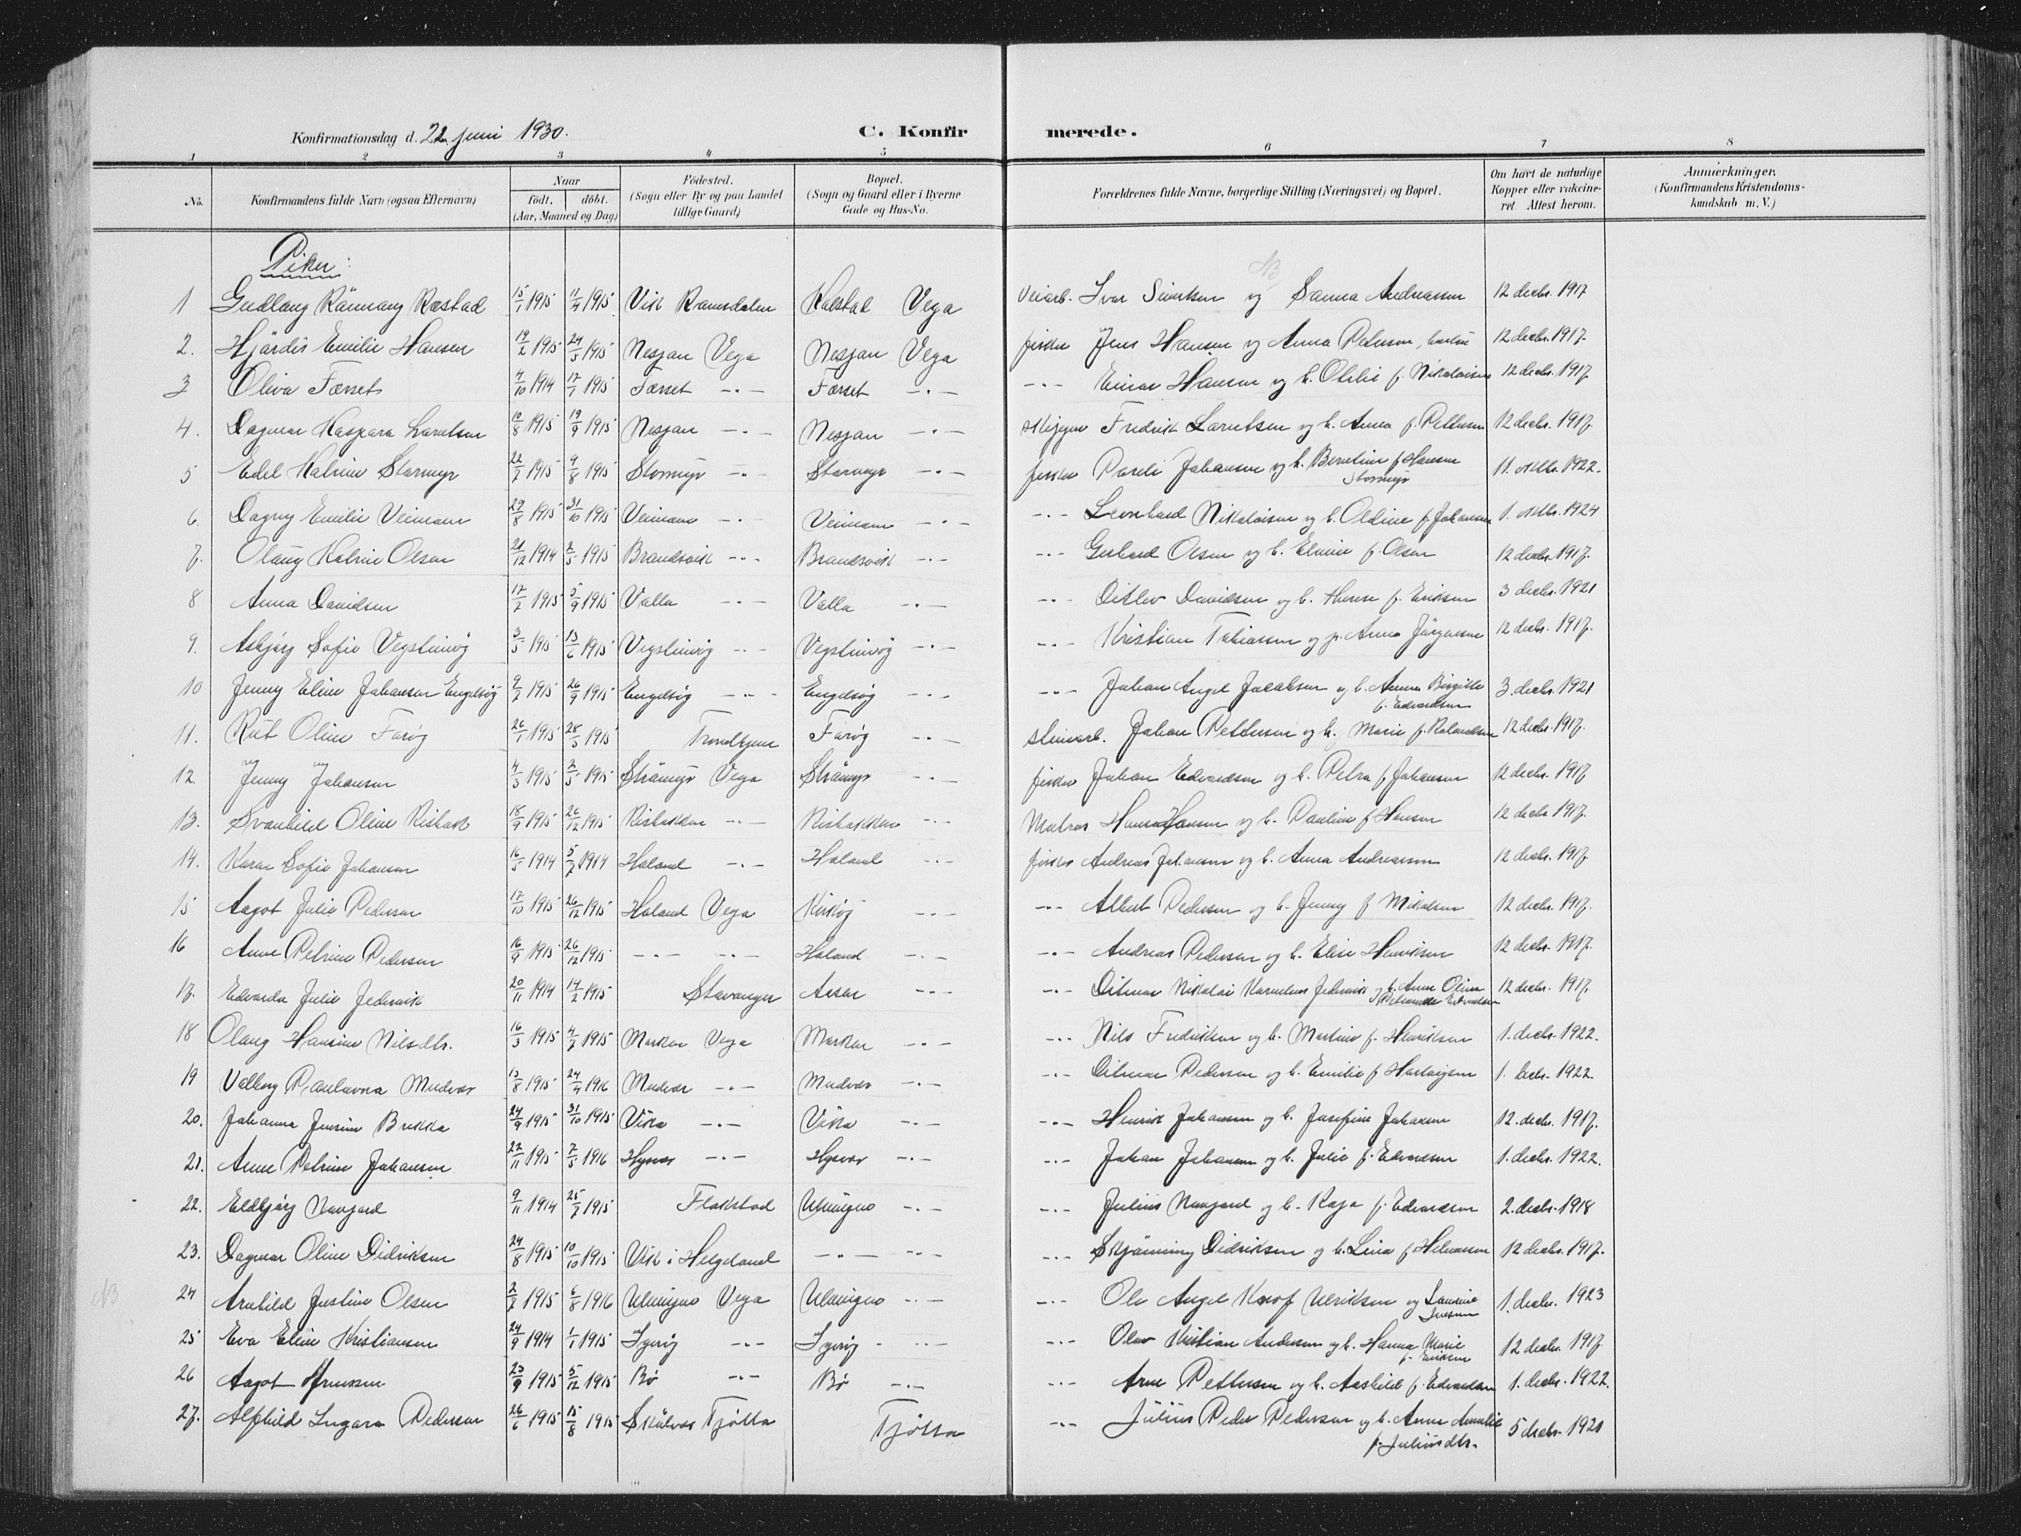 Konfirmationsdag d. 22 juni 1930. C. Konfirmerede.
1 2 3 4 5 6 7 8
No. Konfirmandens fulde Navn (ogsaa Efternavn) Naar født. døbt. (Aar, Maaned og Dag) Fødested. (Sogn eller By og paa Landet tillige Gaard) Bopæl. (Sogn og Gaard eller i Byerne Gade og Hus-No. Forældrenes fulde Navne, borgerlige Stilling (Næringsvei) og Bopæl. Om havt de naturlige Kopper eller vaccineret Attest herom. Anmærkninger. (Konfirmandens Kristendomskundskab m. V.)
Piker:
NB
1 Gudlaug Rånnaug Rostad 15/1 1915 11/4 1915 Vik Ramsdalen Kalstad Vega Veiarb. Ivar Sivertsen og Sanna Andreassen 12 decbr. 1917
2. Hjørdis Emilie Hansen 19/2 1915 24/5 1915 Nesjan Vega Nesjan Vega fisker Jens Hansen og Anna Petersen, 12 decbr. 1917.
3 Oliva Færset 4/10 1914 17/1 1915 Færset -"- Færset -"- -"- Einar Hansen og h. Otelie f. Nikolaisen 12 decbr. 1917.
4. Dagmar Kaspara Larntsen 10/8 1915 19/9 1915 Nesjan -"- Nesjan -"- Fredrik Larntsen og h. Anna f. Pettersen 12 decbr. 1917.
5 Edel Katrine Stormyr 22/2 1915 9/8 1915 Stormyr -"- Stormyr -"- fisker Pareli Johansen og h. Berntine f Hansen Stormyr 11. oktbr. 1922.
6. Dagny Emilie Veimoen 29/8 1915 31/10 1915 Veimoen -"- Veimoen -"- -"- Leonhard Nikolaisen og h. Oldine f. Johansen 1. oktbr. 1924
7. Olaug Katrine Olsen 21/12 1914 2/5 1915 Brandsvik -"- Brandsvik -"- -"- Gerhard Olsen og h. Elmine f Olsen 12 decbr. 1917.
8 Anna Davidsen 17/2 1915 5/9 1915 Valla -"- Valla -"- -"- Ditlev Davidsen og h. Therese f. Eriksen 3 decbr. 1921
9. Asbjørg Sofie Vegsteinvåg 3/5 1915 13/6 1915 -"- -"- -"- Kristian Tobiassen og p. Anna Jørgensen 12 decbr. 1917.
10 Jenny Eline Johansen Engelsøy 9/2 1915 26/9 1915 Engelsøy -"- Engelsøy -"- -"- Johan Angel Jacobsen og h. Anna Birgitte f. Edvardsen 3. decbr. 1921
11. Rut Oline Farøy 26/1 1915 28/3 1915 Trondhjem Farøy -"- steinarb. Johan Pettersen og h. Marie f. Rolandsen 12 decbr. 1917.
12 Jenny Johansen 4/3 1915 2/5 1915 Strømyr Vega Strømyr -"- fisker Johan Edvardsen og h. Petra f Johansen 12 decbr. 1917
13. Svanhild Oline Risbak 18/9 1915 26/12 1915 Risbakken -"- Risbakken -"- Matros Hans Hansen og h. Pauline f Hansen 12 decbr. 1917.
14. Karen Sofie Johansen 16/5 1914 5/7 1914 Holand -"- Holand -"- fisker Andreas Johansen og h. Anna Andreassen 12 decbr. 1917.
15 Aagot Julie Pedersen 17/10 1915 26/12 1915 Holand Vega Kirkøy -"- -"- Albert Pedersen og h. Jenny f Mikalsen 12 decbr. 1917.
16 Anne Petrine Pedersen 16/9 1915 26/12 1915 -"- -"- Holand -"- -"- Andreas Pedersen og h. Elise Henriksen 12 decbr. 1917.
17. Edvarda Julie Jedervik 20/11 1914 14/2 1915 Stavanger -"- -"- Ditmar Nikolai Kornelius Jedervik og h. Anne Oline Edvardsen 12 decbr. 1917.
18 Olaug Hansine Nilsdtr. 16/3 1915 4/7 1915 Marken Vega Marken -"- -"- Nils Fredriksen og h. Martine f. Henriksen 1. decbr. 1922.
19 Valborg Paulovna Mudvær 13/8 1915 24/4 1916 Mudvær -"- Mudvær -"- -"- Ditmar Pedersen og h. Emilie f Hartvigsen 1. decbr. 1922.
20. Johanna Jensine Brekka 24/9 1915 31/10 1915 Vika -"- Vika -"- -"- Henrik Johansen og h. Josefine Johansen 12. decbr. 1917.
21. Anne Petrine Johansen 22/11 1915 7/5 1916 Hysvær -"- Hysvær -"- -"- Johan Johansen og h. Julie f. Edvardsen 1. decbr. 1922.
22. Eldbjørg Naugard 9/11 1914 25/7 1915 Flakstad Ulvingno -"- -"- Julius Naugard og h. Kaja f. Edvardsen 2. decbr. 1918
23. Dagmar Oline Didriksen 24/8 1915 10/10 1915 Vik i Helgeland -"- -"- -"- Skjønning Didriksen og h. Lina f Helmersen 12 decbr. 1917.
NB 24 Arnhild Justine Olsen 2/2 1915 6/8 1916 Ulvingno Vega Ulvingno -"- -"- Ole Angel Knof Ulriksen og Laurine Iversen 1. decbr. 1923
25 Eva Eline Kristiansen 24/9 1914 1/1 1915 Igerøy -"- Igerøy -"- -"- Olav Kristian Andersen og h. Hanna Marie f. Eriksen 12 decbr. 1917.
26 Aagot Arnesen 23/9 1915 5/12 1915 Bø -"- Bø -"- -"- Arne Pettersen og h. Aashild f. Edvardsen 1. decbr. 1922.
27. Alfhild Ingara Pedersen 26/6 1915 15/8 1915 Skålvær Tjøtta Tjøtta -"- Julius Peder Pedersen og h. Anna Amalie f. Juliusdtr. 5 decbr. 1921